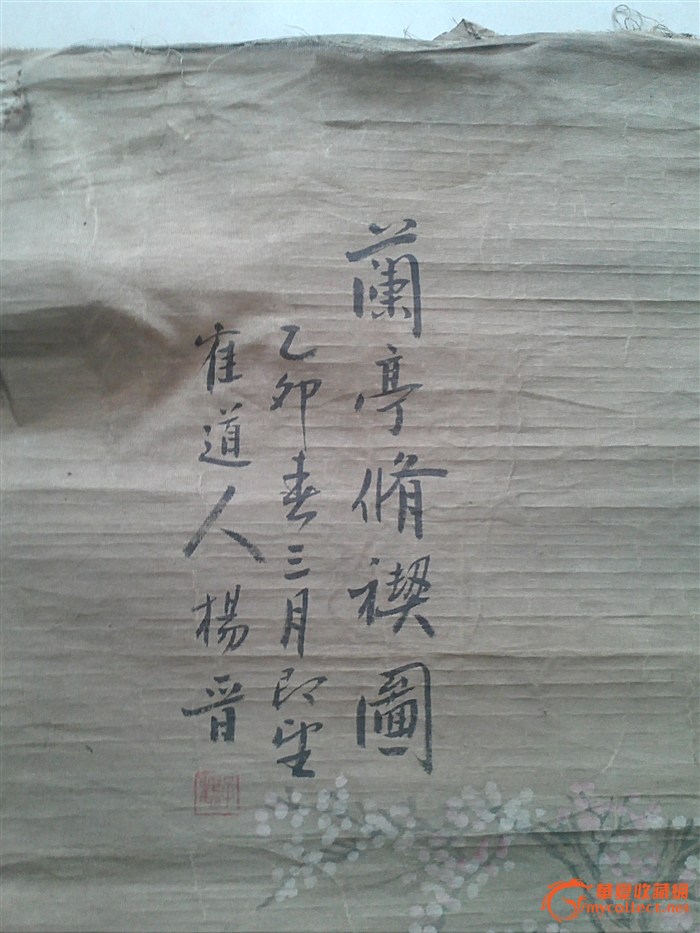 蘭亭脩禊圖
乙卯春三月即望
隺道人楊晉
華夏收藏網
mycollect.net